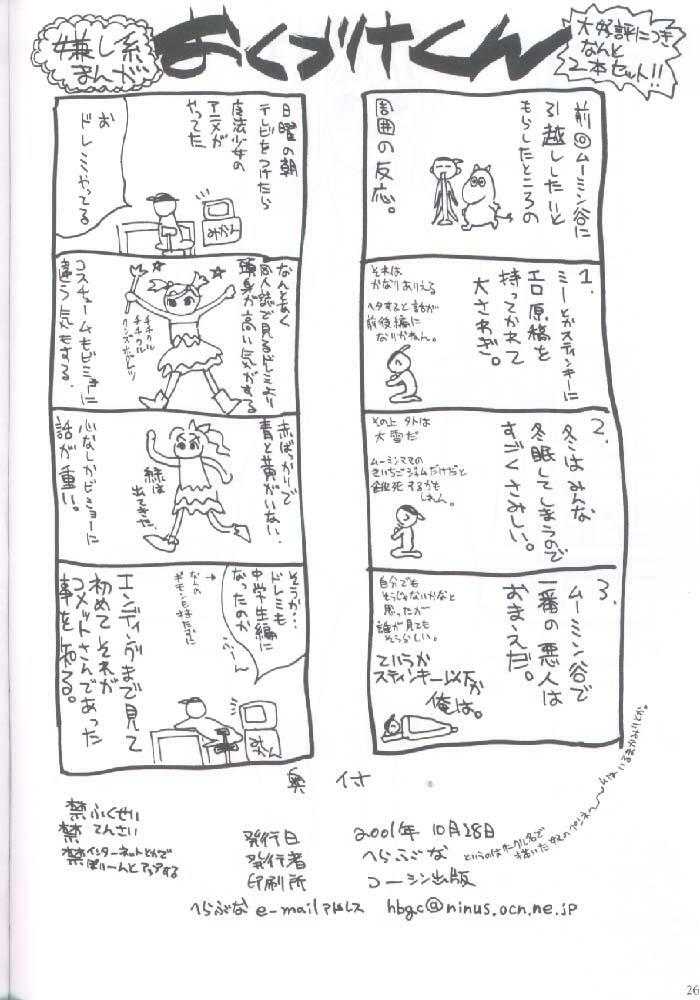 嫌し系
まんが
おくづけくん
大好評につき
なんと
2本セット!!
前回ムーミン谷に
引越ししたいと
もらしたところの
周囲の反応。
1.
ミーとかスティンキーに
エロ原稿を
持ってかれて
大さわぎ。
それは
かなりありえる
ヘタすると話が
前後編に
なりかねん。
2.
冬はみんな
冬眠してしまうので
すごくさみしい。
その上外は
大雪だ
ムーミンママの
きいちごジャムだけだと
餓死するかも
しれん。
3.
ムーミン谷で
一番の悪人は
おまえだ。
自分でも
そうじゃないかなと
思ったが
誰が見ても
そうらしい。
ていうか
スティンキー以下か
俺は。
日曜の朝
テレビをつけたら
魔法少女の
アニメが
やってた
お
ドレミやってる
みかん
なんとなく
同人誌で見るドレミより
頭身が高い気がする
コスチュームもビミョーに
違う気もする.
赤ばっかりで
青と黄がいない.
緑は
出てきた.
心なしかビミョーに
話が重い。
そうか…
ドレミも
中学生編に
なったのか
なんの
ギモンも持たずに
エンディングまで見て
初めてそれが
コメットさんであった
事を知る。
みかん
奥付
禁ふくせい
禁てんさい
禁インターネットとかで
ぽいーんとアップする
発行日 2001年 10月28日
発行者 へらぶな
印刷所 コーシン出版
へらぶな e-mailアドレス hbgc@ninus.ocn.ne.jp
26